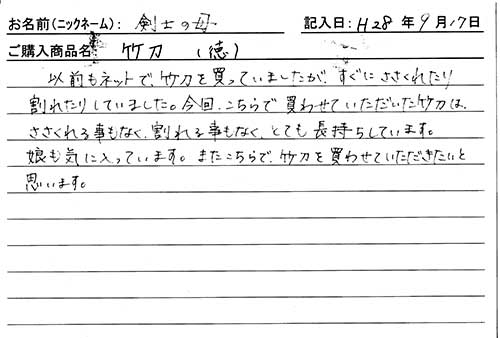 お名前(ニックネーム): 剣士の母 記入日: H28年9月17日
ご購入商品名 竹刀 (徳)
以前もネットで、竹刀を買っていましたが、すぐにささくれたり
割れたりしていました。今回、こちらで買わせていただいた竹刀は、
ささくれる事もなく、割れる事もなく、とても長持ちしています。
娘も気に入っています。またこちらで、竹刀を買わせていただきたいと
思います。